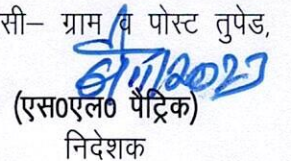 सी– ग्राम व पोस्ट तुपेड,
(एस0एल0 पैट्रिक)
निदेशक